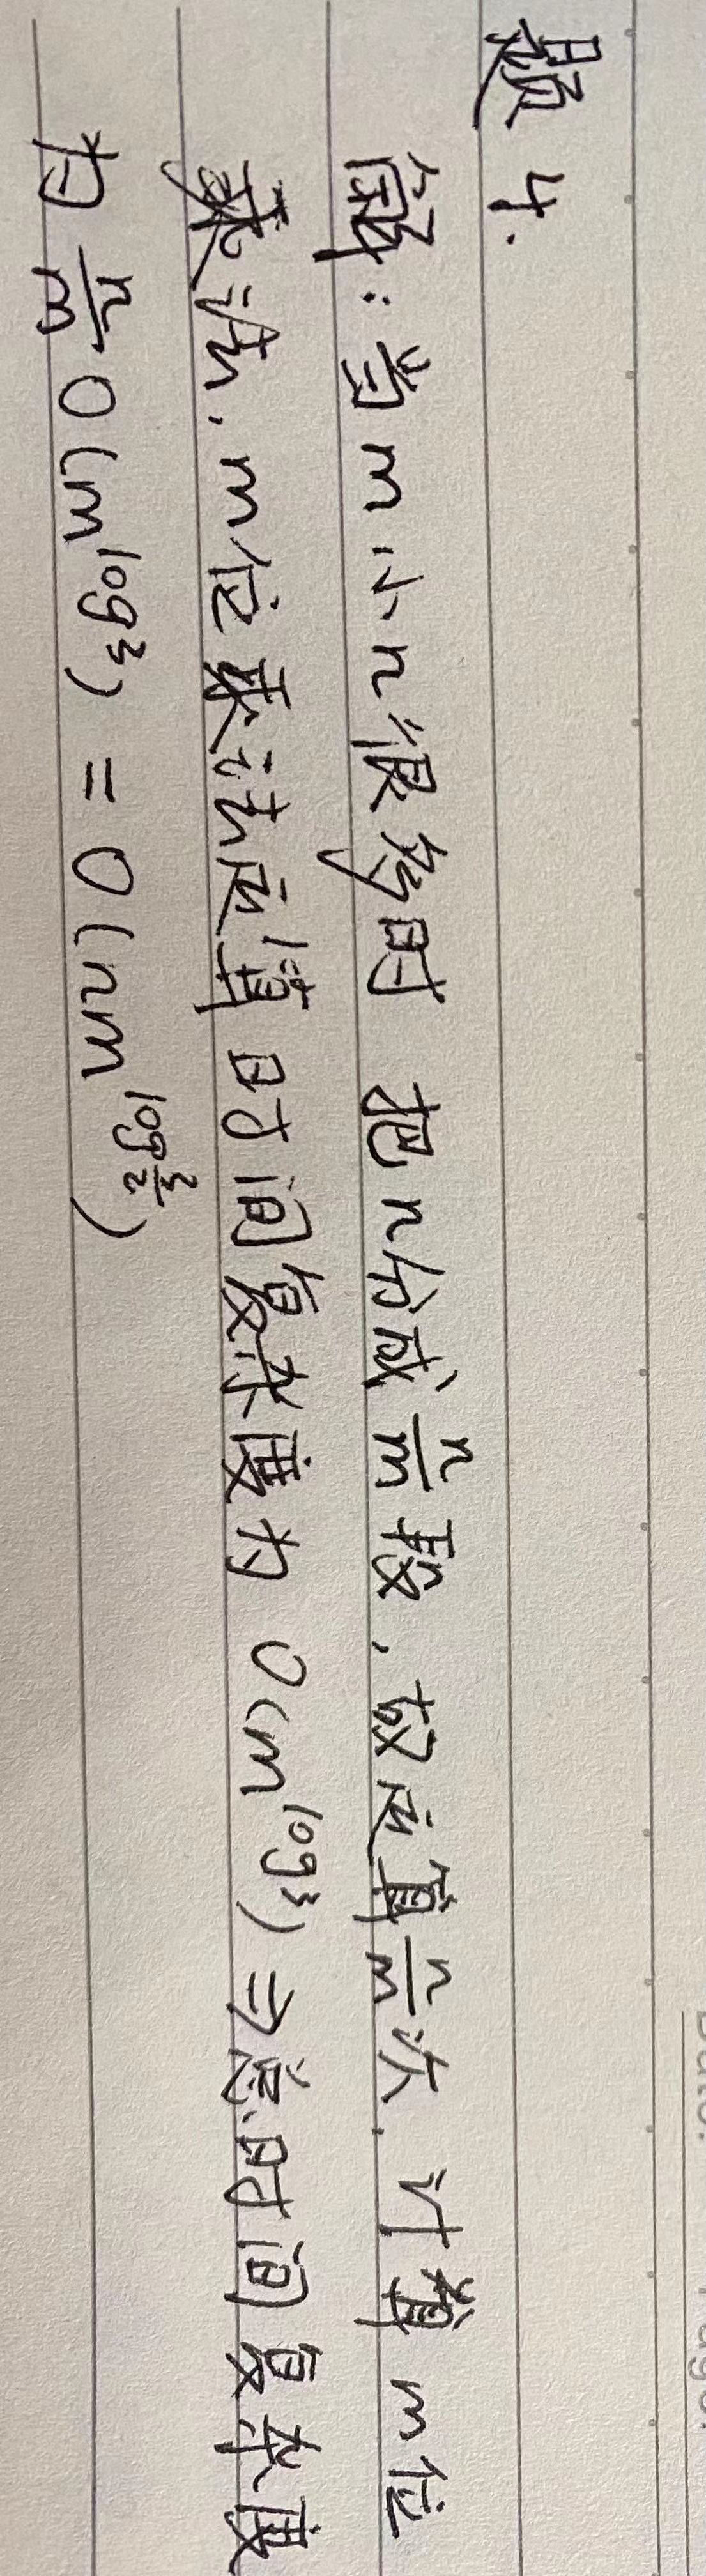 题 4.
解：当 m 小 n 很多时 把 n 分成 n/m 段，故应算 n/m 次. 计算 m 位
乘法，m 位乘法应算时间复杂度为 O(m^log3) ⇒ 总时间复杂度
为 n/m O(m^log3) = O(nm^log 3/2)